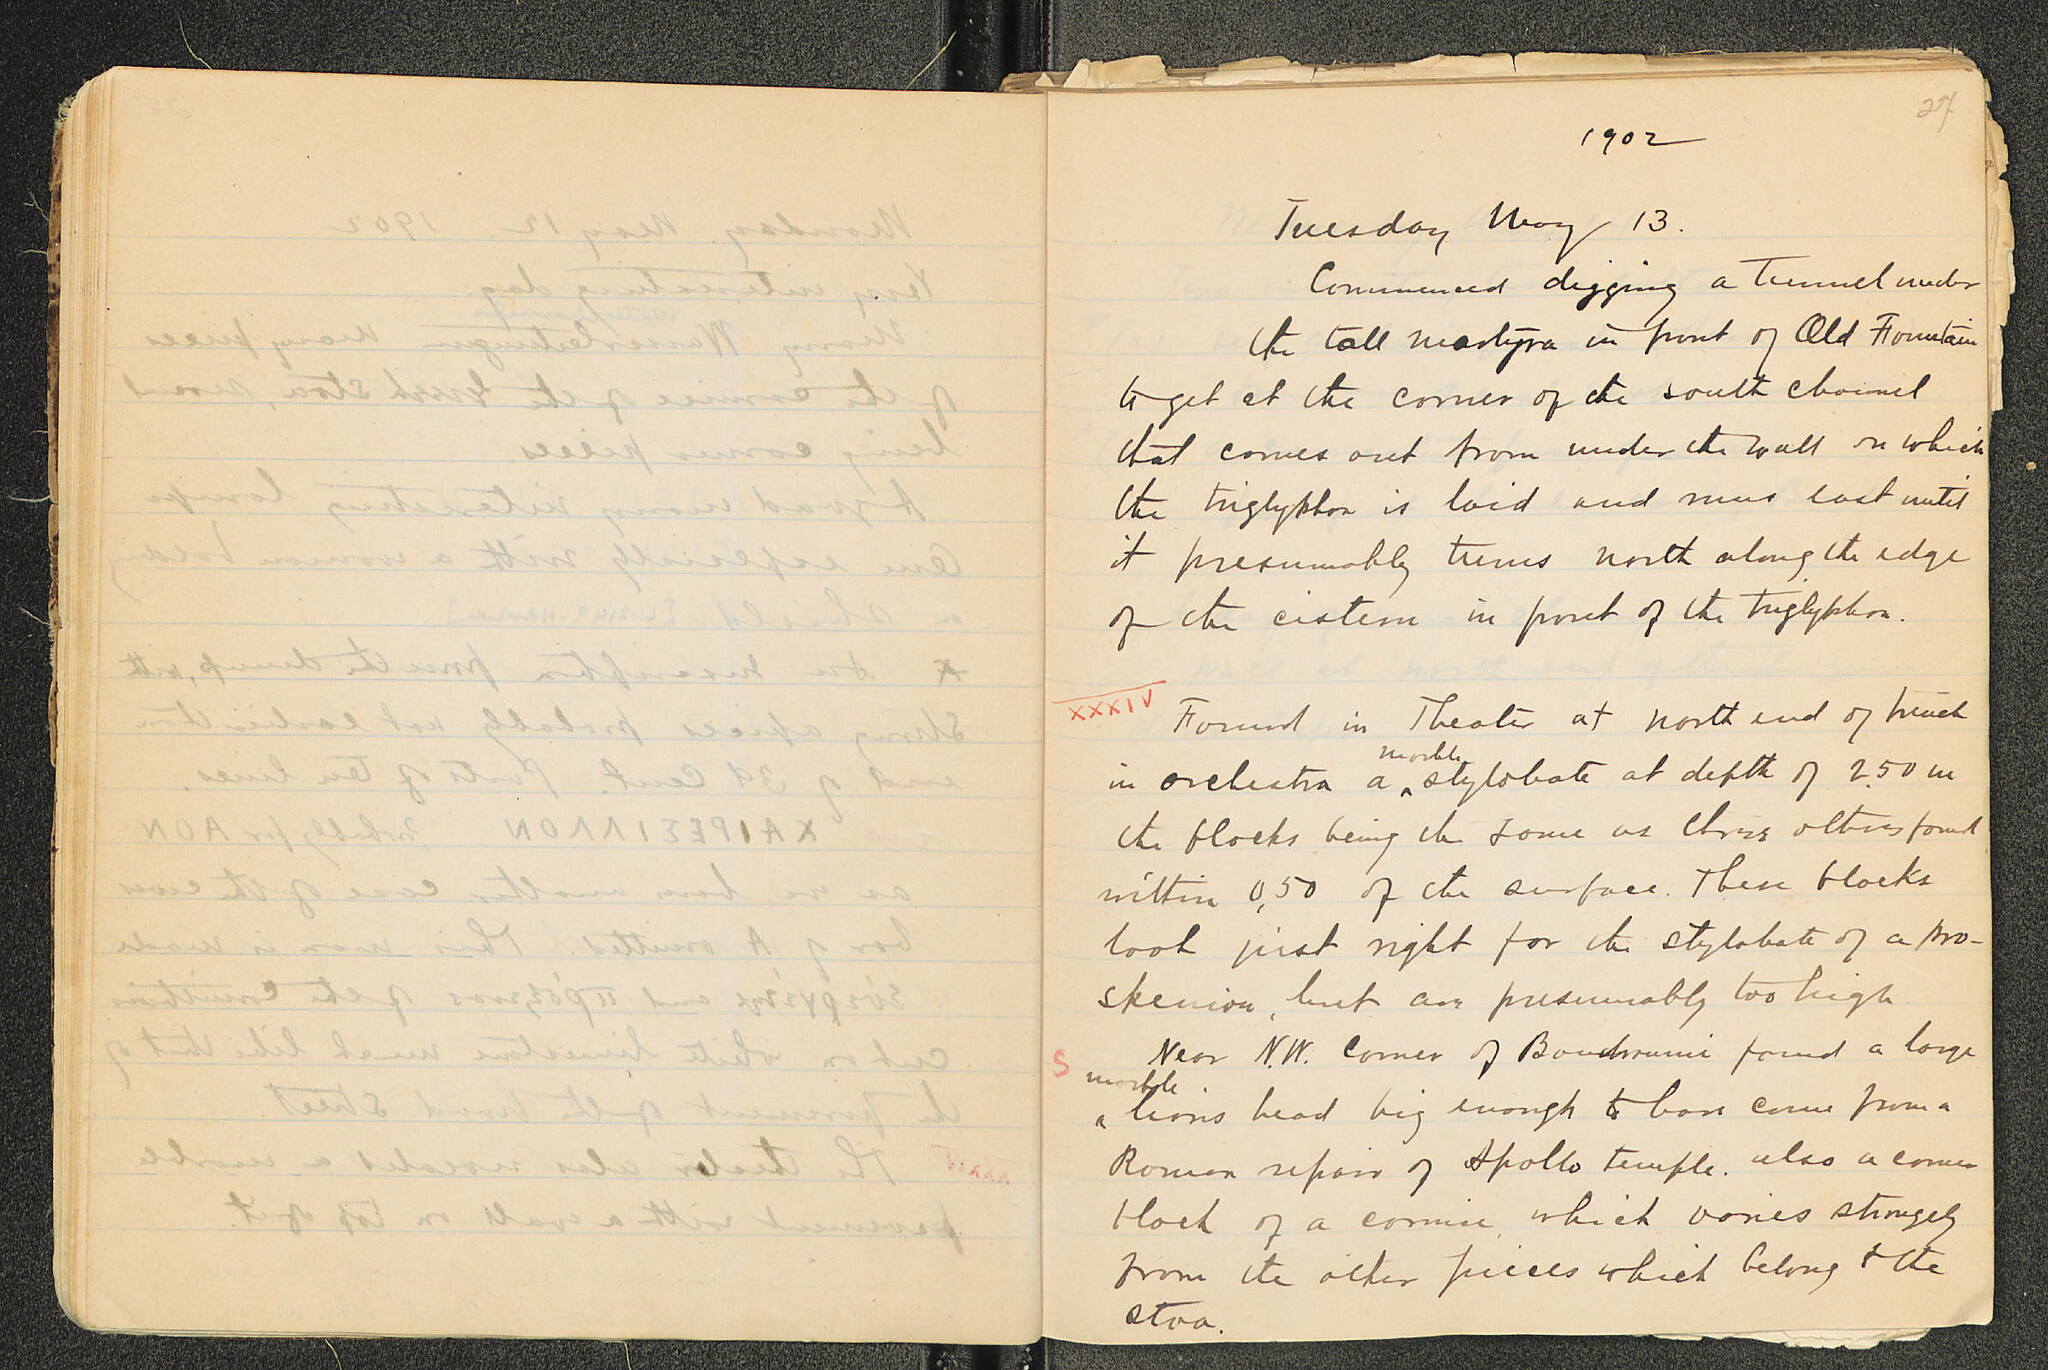 27
1902
Tuesday May 13.
Commenced digging a tunnel under
the tall martyra in front of Old Fountain
to get at the corner of the south channel
that comes out from under the wall on which
the triglyphon is laid and runs east until
it presumably turns north along the edge
of the cistern in front of the triglyphon.
XXXIV Found in Theater at north end of trench
in orchestra a marble stylobate at depth of 2.50 m
the blocks being the same as three others found
within 0,50 of the surface. These blocks
look just right for the stylobate of a pro-
skenion, but are presumably too high
S Near N.W. Corner of Boudroumi found a large
marble lions head big enough to have come from a
Roman repair of Apollo temple. also a corner
block of a cornice which varies strangely
from the other pieces which belong to the
stoa.